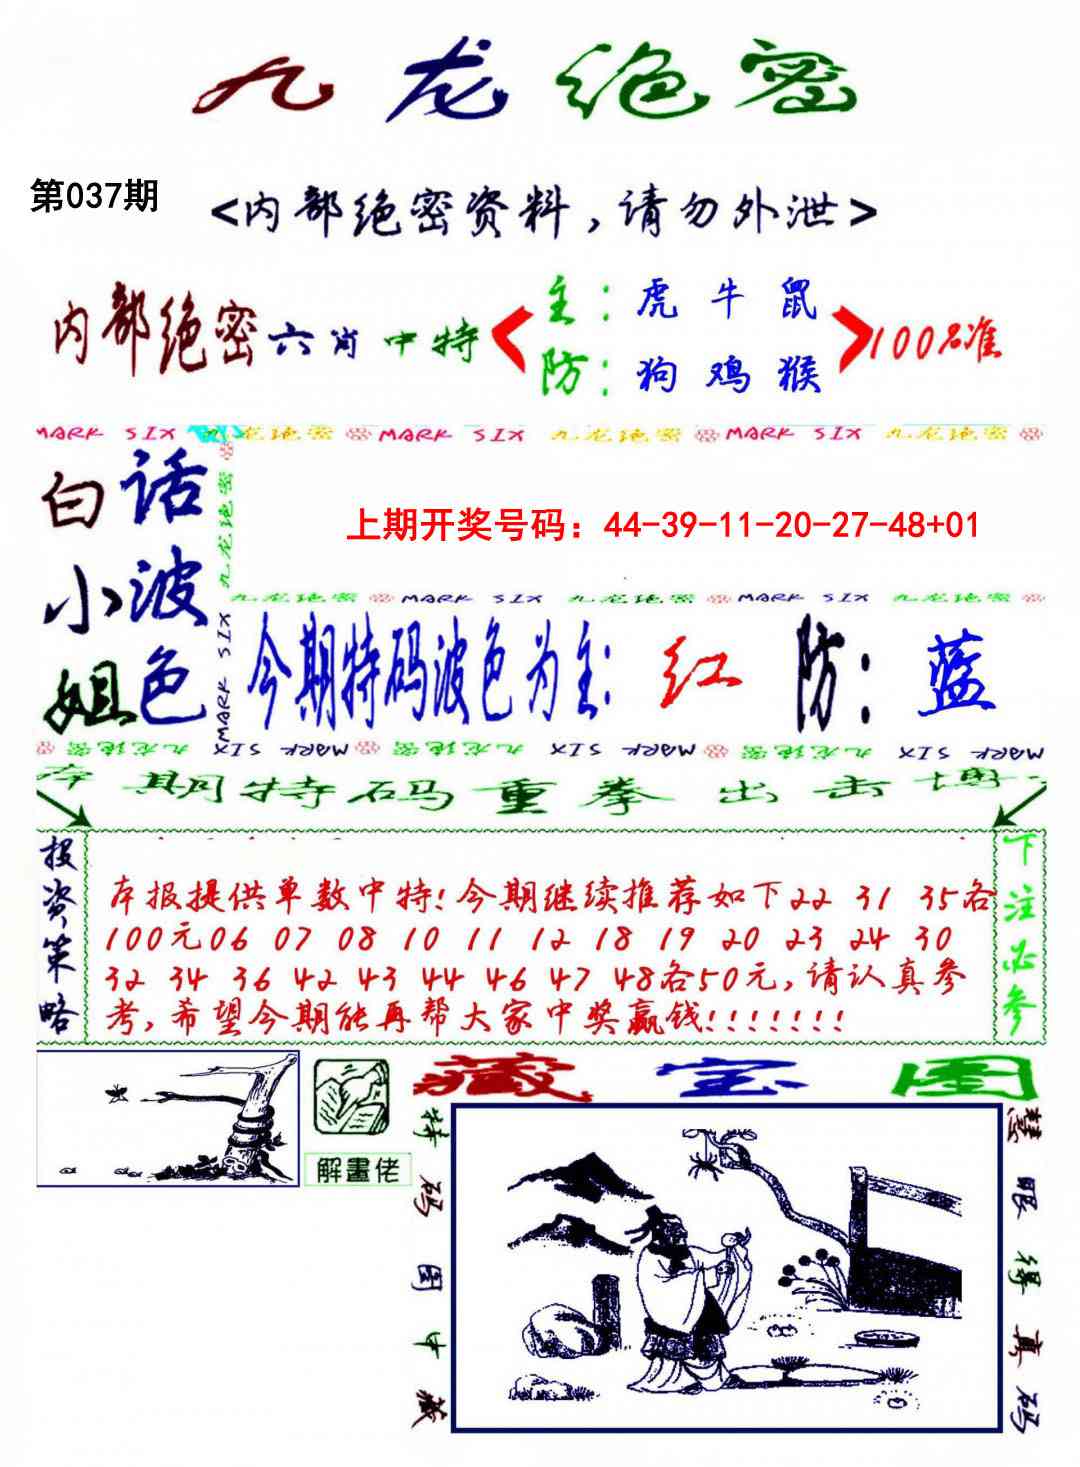 九龙绝密
第037期
<内部绝密资料，请勿外泄>
内部绝密六肖中特
主：虎 牛 鼠
防：狗 鸡 猴
100%准
MARK SIX 九龙绝密 MARK SIX 九龙绝密 MARK SIX 九龙绝密
白话
小波
姐色
九龙绝密
MARK SIX
上期开奖号码：44-39-11-20-27-48+01
九龙绝密 MARK SIX 九龙绝密 MARK SIX 九龙绝密
今期特码波色为主：红 防：蓝
九龙绝密 MARK SIX 九龙绝密 MARK SIX 九龙绝密 MARK SIX
本期特码重拳出击博
投资策略
本报提供单数中特！今期继续推荐如下22 31 35各
100元06 07 08 10 11 12 18 19 20 23 24 30
32 34 36 42 43 44 46 47 48各50元，请认真参
考，希望今期能再帮大家中奖赢钱！！！！！！！
下注必参
解畫佬
藏宝图
特码图中藏
慧眼得真码